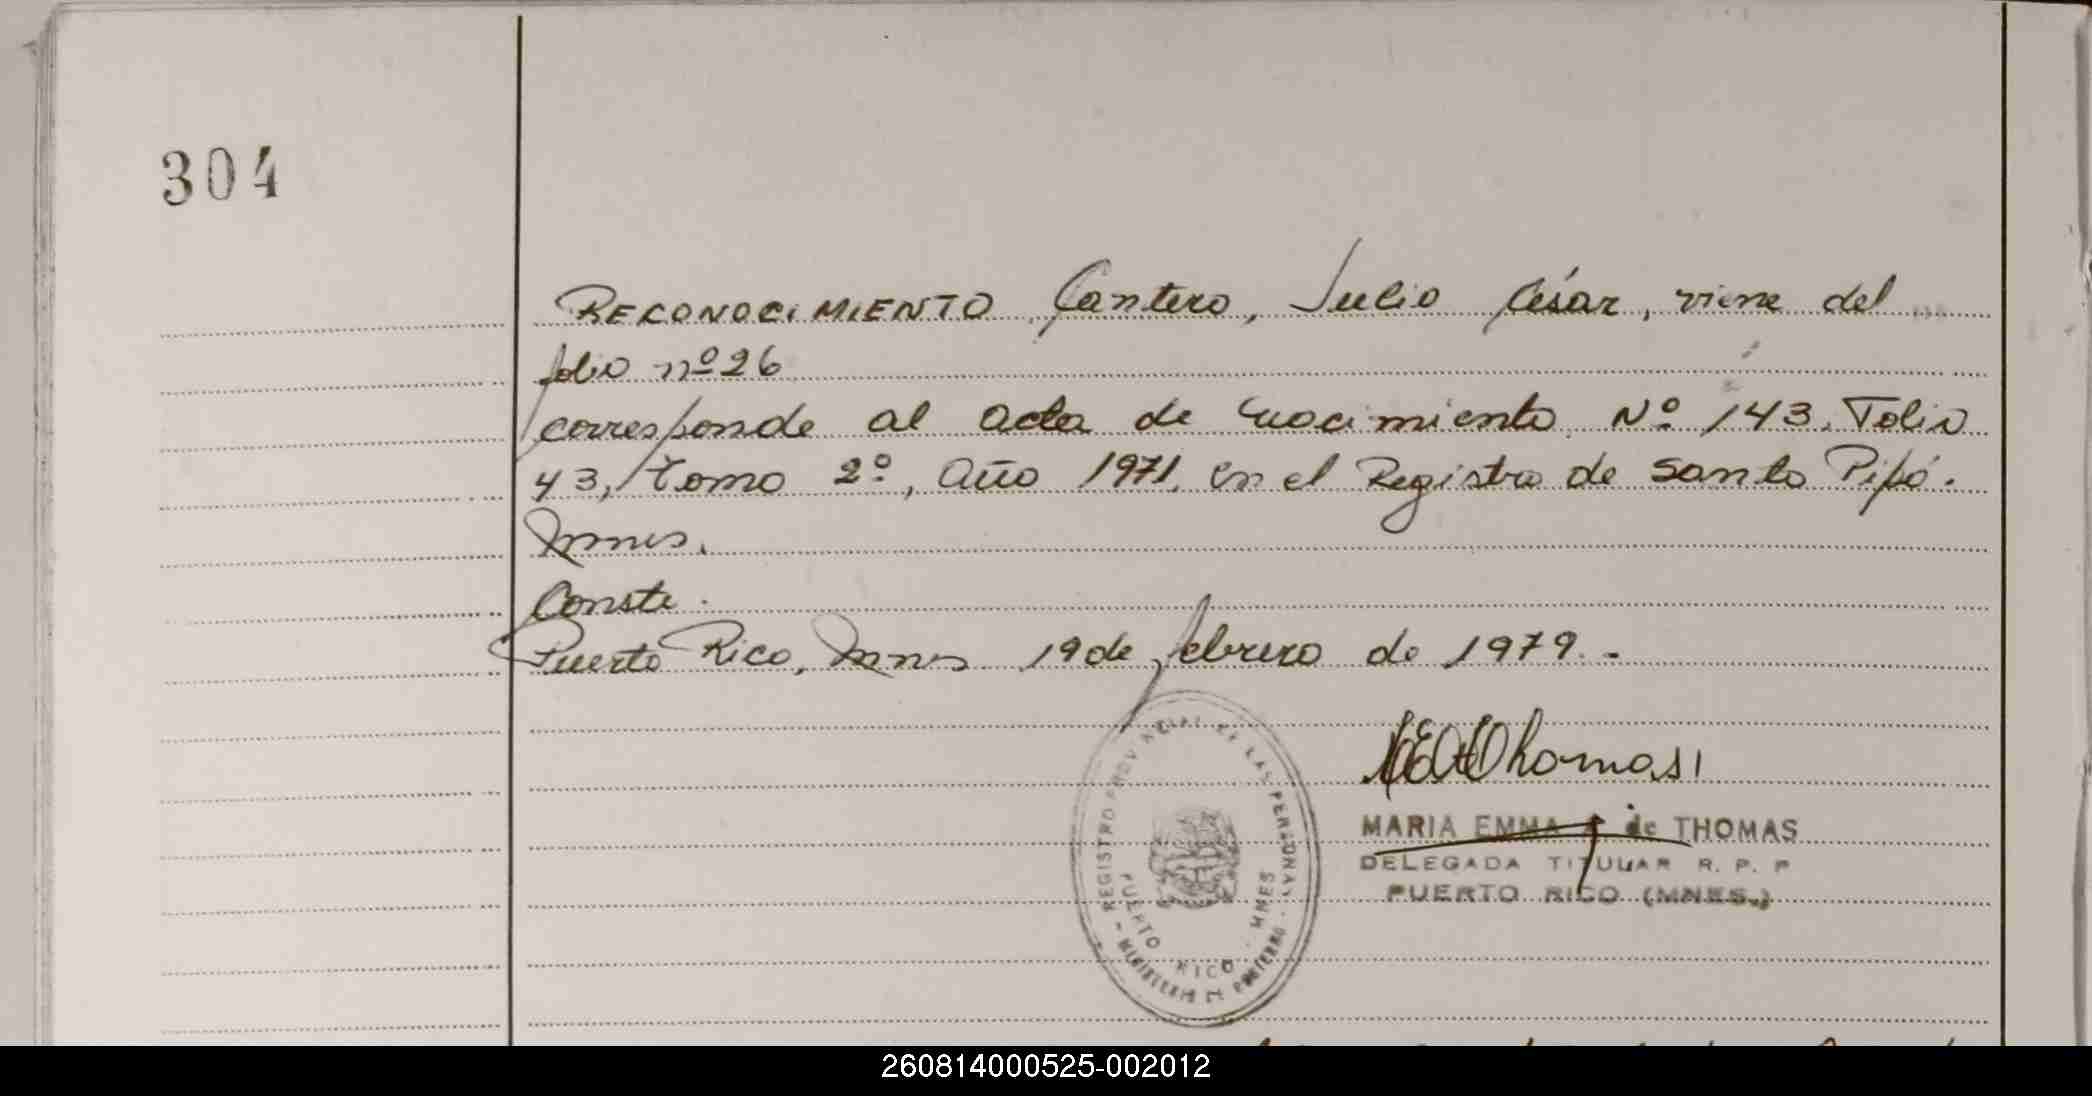 304
RECONOCIMIENTO Cantero, Julio César, viene del
folio nº 26
corresponde al acta de nacimiento Nº 143, Folio
43, Tomo 2º, Año 1971, en el Registro de Santo Pipó.
Mnes.
Conste.
Puerto Rico, Mnes 19 de febrero de 1979.-
Thomas
MARIA EMMA de THOMAS
DELEGADA TITULAR R. P. P
PUERTO RICO (MNES.)
REGISTRO PROVINCIAL DE LAS PERSONAS
- MINISTERIO DE GOBIERNO -
PUERTO RICO - MNES
260814000525-002012